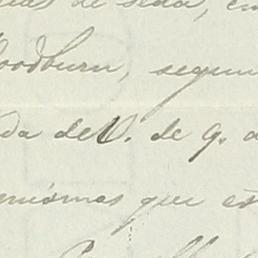 de seda,
oodburn, segun
da del V. de g.
mismos que es